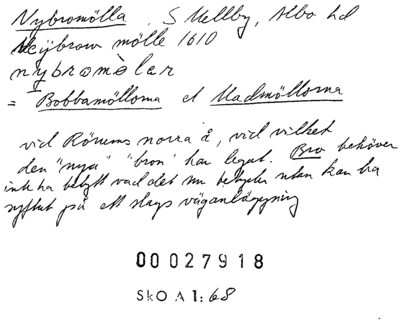 Nybromölla. S Mellby, Albo hd
Neÿbrow mölle 1610
nybromòlar
= Bobbamöllorna et Uadmöllorna
vid Rörums norra å, vid vilket
den "nya" 'bron' har legat. Bro behöver
inte ha betytt vad det nu betyder utan kan ha
syftat på ett slags väganläggning
00027918
SkO A 1:68